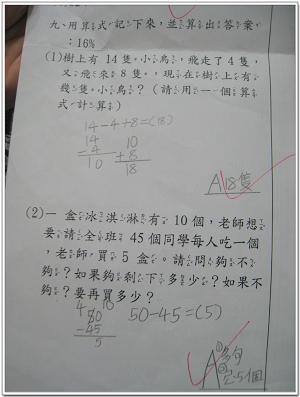 九、用算式記下來,並算出答案
:16%
(1)樹上有14隻小鳥,飛走了4隻,
又飛來8隻,現在樹上有
幾隻小鳥?(請用一個算
式計算)
14-4+8=(18)
14
-4
10
10
+8
18
A18隻
(2)一盒冰淇淋有10個,老師想
要請全班45個同學每人吃一個
,老師買5盒。請問夠不
夠?如果夠剩下多少?如果不
夠?要再買多少?
4 10
50
-45
5
50-45=(5)
A①夠
②5個